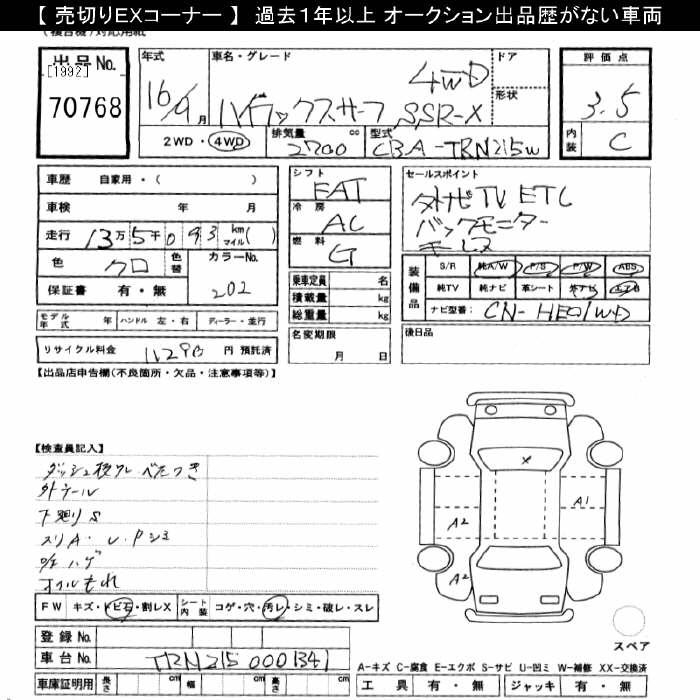 【 売切りEXコーナー 】 過去1年以上 オークション出品歴がない車両
出品No.
[1992]
70768
年式
16/9月
車名・グレード
4WD
ハイラックスサーフ SSR-X
ドア
形状
2WD・4WD
排気量 cc
2700
型式
CBA-TRN215W
評価点
3.5
内装
C
車歴 自家用・( )
車検 年 月
走行 13万5千093 km マイル( )
色 クロ
色替
カラーNo.
202
保証書 有・無
モデル年式 年 ハンドル 左・右 ディーラー・並行
リサイクル料金 11290 円 預託済
シフト
FAT
冷房
AC
燃料
G
乗車定員 名
積載量 kg
総重量 kg
名変期限
月 日
セールスポイント
外ナビTV ETC
バックモニター
キーレス
装備品
S/R 純A/W P/S P/W ABS
純TV 純ナビ 革シート 外ナビ エアB
ナビ型番: CN-HE01WD
後日品
【出品店申告欄(不良箇所・欠品・注意事項等)】
【検査員記入】
ダッシュ板ワレ べたつき
外テール
下廻りS
スリA・レ.Pシミ
ハゲ
オイルもれ
X
A1
A2
A2
FW キズ・トビ石・割レX
シート内装 コゲ・穴・汚レ・シミ・破レ・スレ
スペア
登録No.
車台No. TRN215 0001341
車庫証明用 長さ cm 幅 cm 高さ cm
A-キズ C-腐食 E-エクボ S-サビ U-凹ミ W-補修 XX-交換済
工具 有・無 ジャッキ 有・無